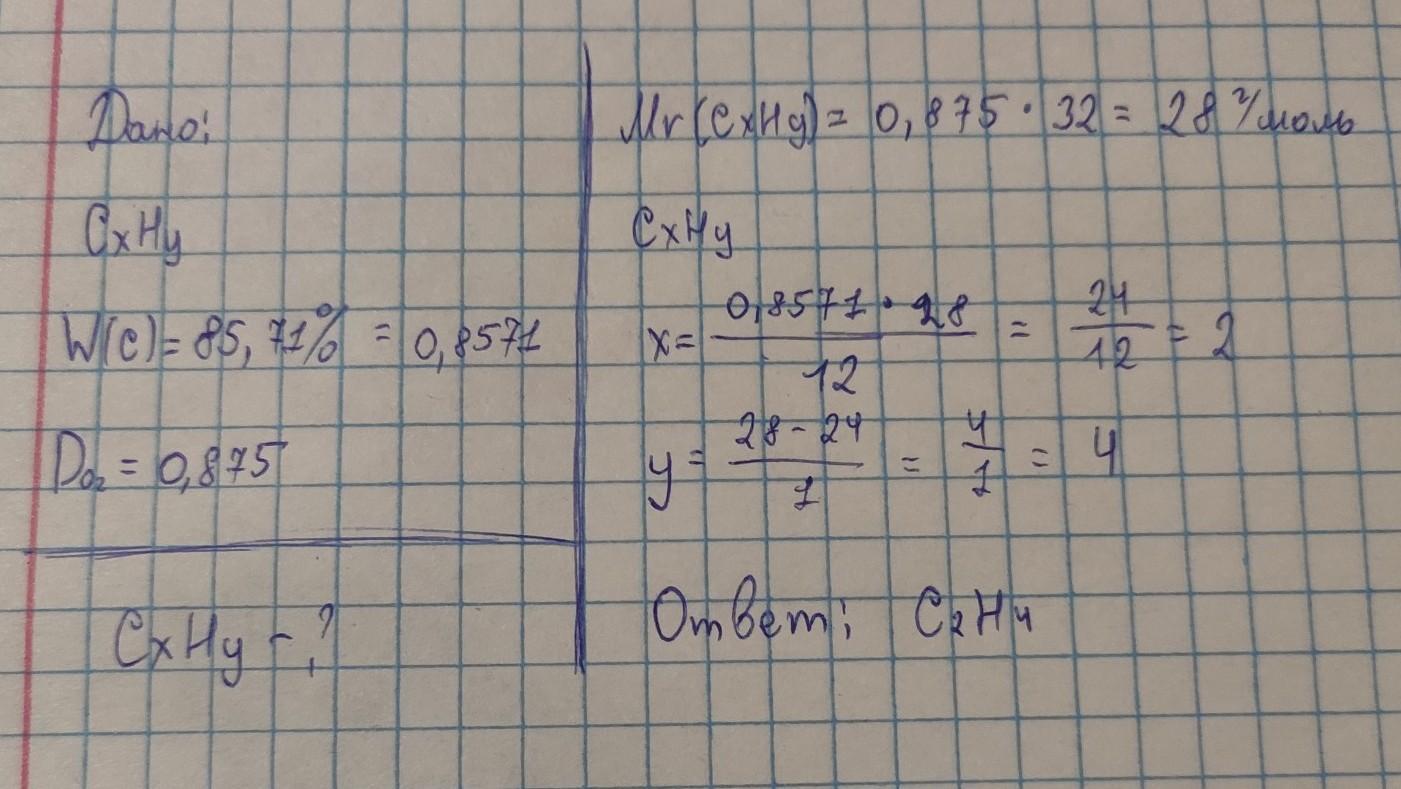 Дано:
CxHy
W(C) = 85,71% = 0,8571
Do₂ = 0,875
CxHy - ?
Mr(CxHy) = 0,875 · 32 = 28 г/моль
CxHy
x = 0,8571 · 28 / 12 = 24 / 12 = 2
y = 28 - 24 / 1 = 4 / 1 = 4
Ответ: C₂H₄